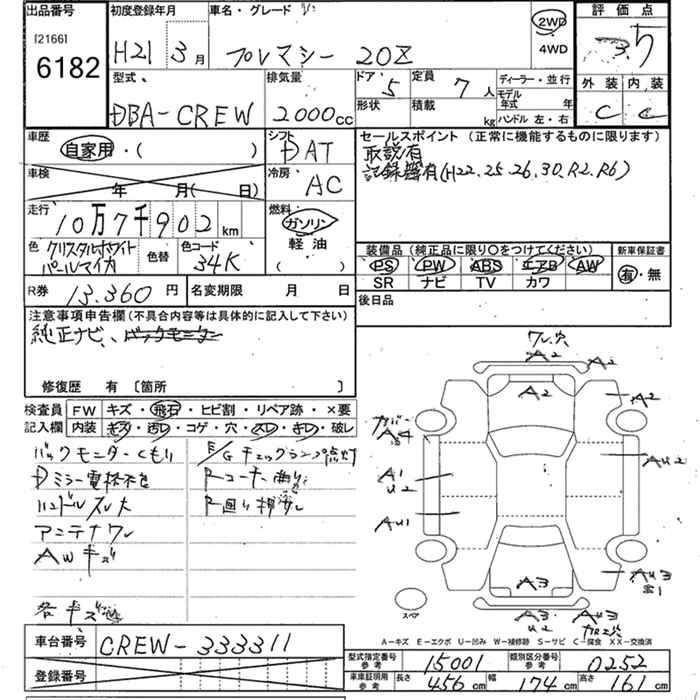 出品番号 初度登録年月 車名・グレード 2WD 4WD 評価点
[2166]
6182 H21 3月 プレマシー 20Z 3.5
型式 排気量 ドア 5 定員 7人 ディーラー・並行 外装 内装
DBA-CREW 2000cc 形状 積載 kg モデル年式 年 ハンドル 左・右 C C
車歴 自家用・( ) シフト DAT セールスポイント (正常に機能するものに限ります)
取説有
車検 年 月( 日) 冷房 AC 記録簿有(H22.25.26.30.R2.R6)
走行 10万7千902km 燃料 ガソリン 軽油 ( )
色 クリスタルホワイトパールマイカ 色替 色コード 34K
装備品 (純正品に限り○をつけてください) 新車保証書
PS PW ABS エアB AW 有・無
SR ナビ TV カワ
R券 13.360円 名変期限 月 日 後日品
注意事項申告欄(不具合内容等は具体的に記入して下さい)
純正ナビ、バックモニター
修復歴 有〔箇所 〕
検査員記入欄 FW キズ・飛石・ヒビ割・リペア跡・×要
内装 キズ・汚レ・コゲ・穴・スレ・キレ・破レ
バックモニターくもり E/Gチェックランプ点灯
Dミラー電格不良 Rコーナー曲り
ハンドルスレ大
アンテナワレ
AWキズ
各キズ
ワレ、穴
A2 A2
A2 A2
A4
A1 U2 AU2
AU1
A3 AU3 S1
スペア A3 U2 AU3
A-キズ E-エクボ U-凹み W-補修跡 S-サビ C-腐食 XX-交換済
車台番号 CREW-333311
登録番号
型式指定番号 参考 15001 類別区分番号 参考 0252
車車証明用 参考 長さ 456cm 幅 174cm 高さ 161cm